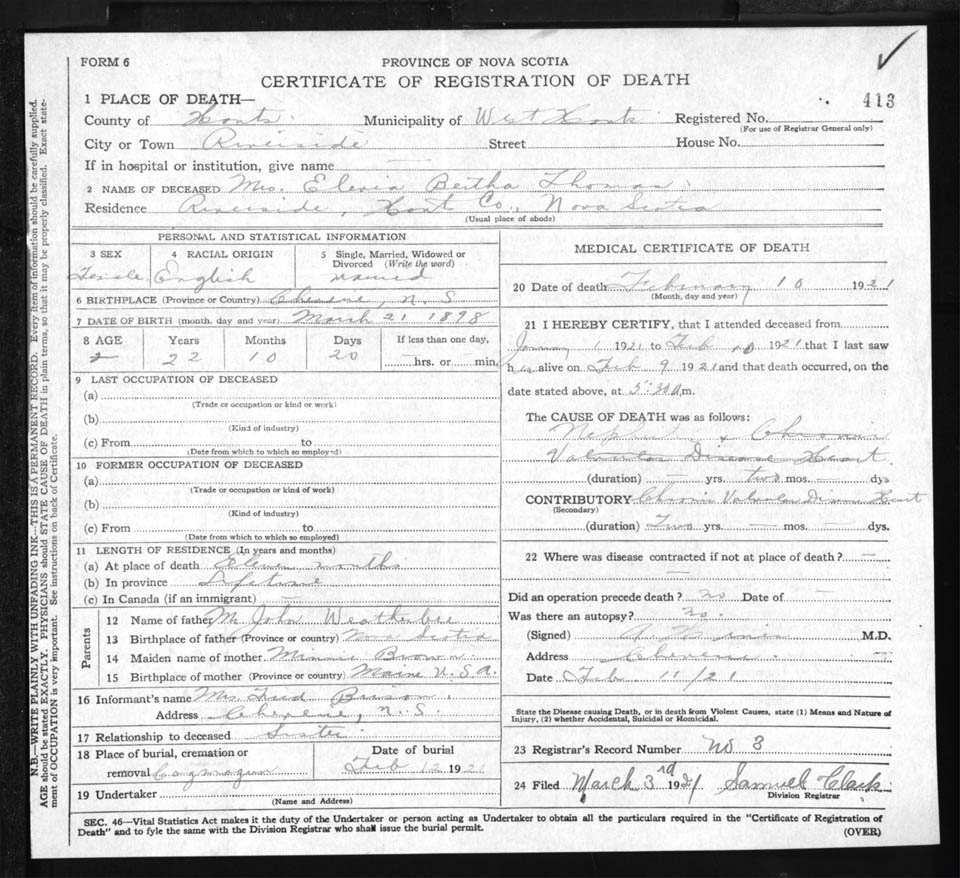 FORM 6
PROVINCE OF NOVA SCOTIA
CERTIFICATE OF REGISTRATION OF DEATH
413
1 PLACE OF DEATH—
County of Hants. Municipality of West Hants Registered No.
(For use of Registrar General only)
City or Town Riverside Street House No.
If in hospital or institution, give name —
2 NAME OF DECEASED Mrs. Bertha Thomas
Residence Riverside, Hant Co., Nova Scotia
(Usual place of abode)
PERSONAL AND STATISTICAL INFORMATION
3 SEX 4 RACIAL ORIGIN 5 Single, Married, Widowed or Divorced (Write the word)
Female English Married
6 BIRTHPLACE (Province or Country) N. S
7 DATE OF BIRTH (month, day and year) March 21 1898
8 AGE Years Months Days If less than one day,
22 10 20 hrs. or min.
9 LAST OCCUPATION OF DECEASED
(a)
(Trade or occupation or kind or work)
(b)
(Kind of industry)
(c) From to
(Date from which to which so employed)
10 FORMER OCCUPATION OF DECEASED
(a)
(Trade or occupation or kind of work)
(b)
(Kind of industry)
(c) From to
(Date from which to which so employed)
11 LENGTH OF RESIDENCE (In years and months)
(a) At place of death Eleven months
(b) In province Lifetime
(c) In Canada (if an immigrant) —
Parents
12 Name of father Mr John Weatherbee
13 Birthplace of father (Province or country) Nova Scotia
14 Maiden name of mother Minnie Brown
15 Birthplace of mother (Province or country) Maine U.S.A.
16 Informant's name Mrs Fred
Address N. S.
17 Relationship to deceased Sister
18 Place of burial, cremation or removal Date of burial
Cogmagun Feb 12 1921
19 Undertaker
(Name and Address)
MEDICAL CERTIFICATE OF DEATH
20 Date of death February 10 1921
(Month, day and year)
21 I HEREBY CERTIFY, that I attended deceased from
January 1 1921 to Feb 10 1921 that I last saw
her alive on Feb 9 1921 and that death occurred, on the
date stated above, at 5:30 a.m.
The CAUSE OF DEATH was as follows:
Chronic
Valvular Disease Heart.
(duration) — yrs. two mos. — dys
CONTRIBUTORY Chronic Valvular Disease Heart
(Secondary)
(duration) Two yrs. — mos. — dys.
22 Where was disease contracted if not at place of death? —
Did an operation precede death? No Date of —
Was there an autopsy? No.
(Signed) M.D.
Address
Date Feb 11/21
State the Disease causing Death, or in death from Violent Causes, state (1) Means and Nature of
Injury, (2) whether Accidental, Suicidal or Homicidal.
23 Registrar's Record Number No 3
24 Filed March 3rd 1921 Samuel Clark
Division Registrar
SEC. 46—Vital Statistics Act makes it the duty of the Undertaker or person acting as Undertaker to obtain all the particulars required in the "Certificate of Registration of
Death" and to fyle the same with the Division Registrar who shall issue the burial permit.
(OVER)
N.B.—WRITE PLAINLY WITH UNFADING INK—THIS IS A PERMANENT RECORD. Every item of information should be carefully supplied.
AGE should be stated EXACTLY. PHYSICIANS should STATE CAUSE OF DEATH in plain terms, so that it may be properly classified. Exact state-
ment of OCCUPATION is very important. See instructions on back of Certificate.